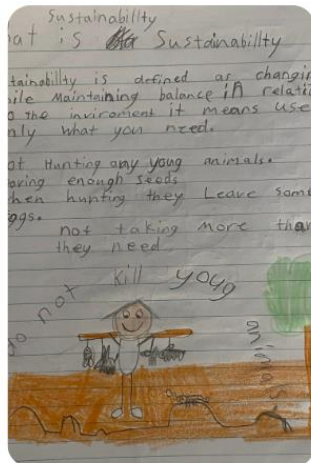 Sustainability
at is Sustainability
tainability is defined as changin
ile Maintaining balance in relati
o the inviroment it means use
nly what you need.
ot Hunting any young animals.
aving enough seeds
hen hunting they Leave some
ggs.
not taking more than
they need
do not kill young animals